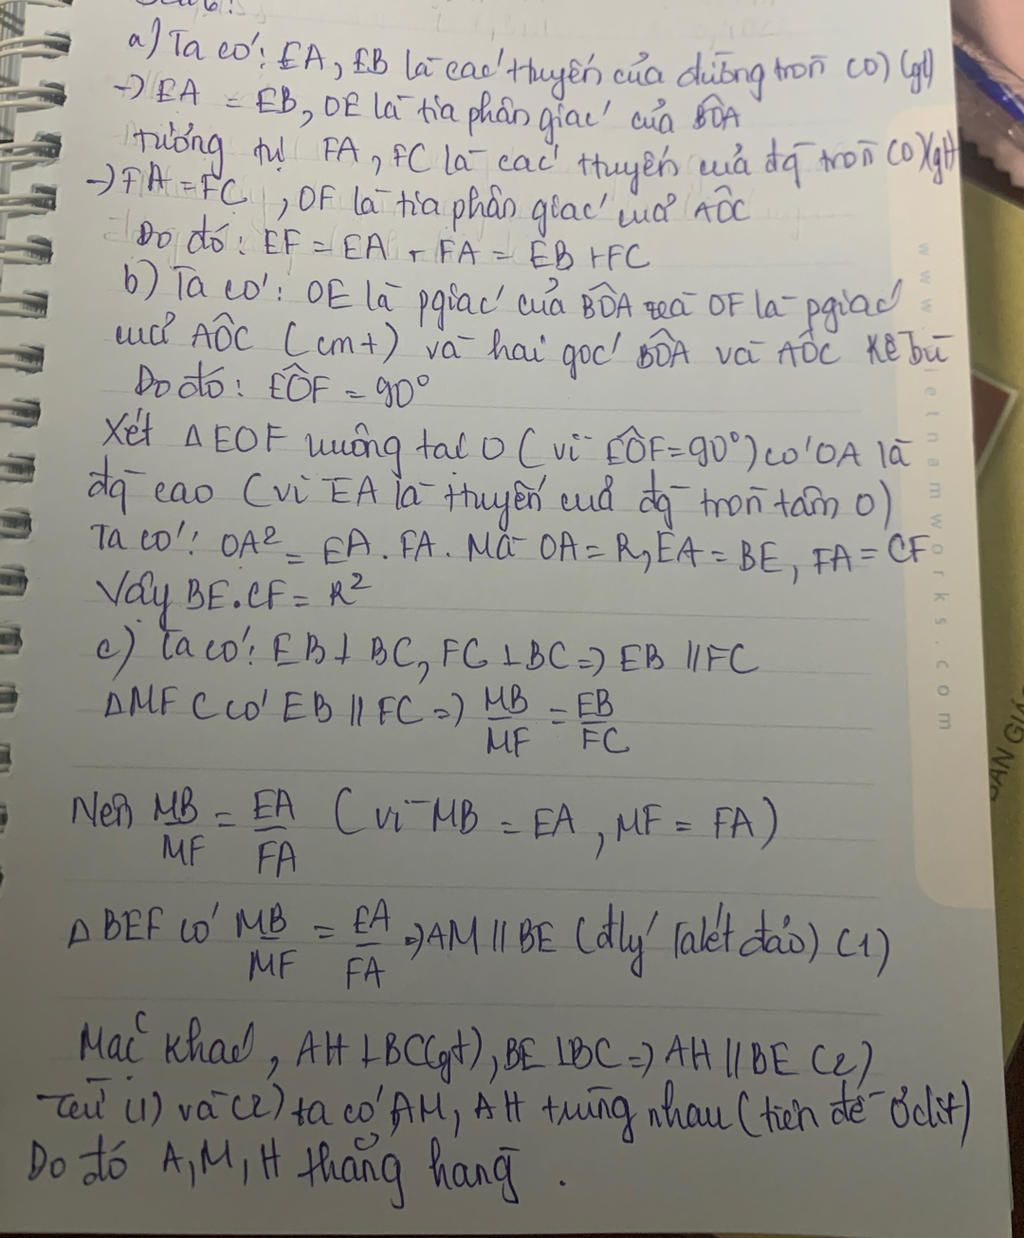 a) Ta có: EA, EB là các tuyến của đường tròn (O) (gt)
→ EA = EB, OE là tia phân giác của BÔA
tương tự FA, FC là các tuyến của đg tròn (O) (gt)
→ FA = FC, OF là tia phân giác của AÔC
Do đó: EF = EA + FA = EB + FC
b) Ta có: OE là pgiác của BÔA và OF là pgiác
của AÔC (cmt) và hai góc BÔA và AÔC kề bù
Do đó: EÔF = 90°
Xét ΔEOF vuông tại O (vì EÔF = 90°) có OA là
đg cao (vì EA là tuyến của đg tròn tâm O)
Ta có: OA² = EA . FA. Mà OA = R, EA = BE, FA = CF
Vậy BE.CF = R²
c) Ta có: EB ⊥ BC, FC ⊥ BC => EB // FC
ΔMFC có EB // FC => MB/MF = EB/FC
Nên MB/MF = EA/FA (vì MB = EA, MF = FA)
ΔBEF có MB/MF = EA/FA => AM // BE (đlý Talét đảo) (1)
Mặc khác, AH ⊥ BC (gt), BE ⊥ BC => AH // BE (2)
Từ (1) và (2) ta có AM, AH trùng nhau (tiên đề Ơclit)
Do đó A, M, H thẳng hàng.
www.vietnamworks.com